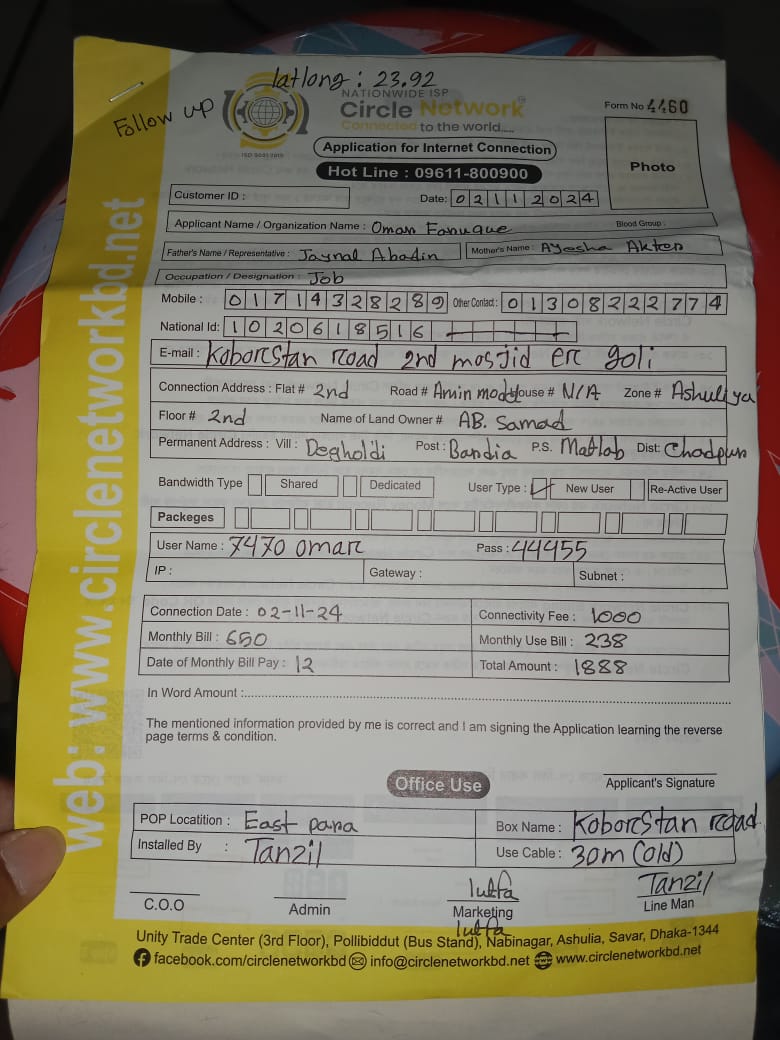 latlong : 23.92
Follow up
NATIONWIDE ISP
Circle Network
Connected to the world.....
ISO 9001:2015
Form No 4460
Application for Internet Connection
Photo
Hot Line : 09611-800900
Customer ID :
Date: 02112024
Applicant Name / Organization Name : Omar Faruque Blood Group :
Father's Name / Representative : Jaynal Abadin Mother's Name : Ayesha Akter
Occupation / Designation : Job
Mobile : 01714328289 Other Contact : 01308222774
National Id: 1020618516
E-mail : Koborstan road 2nd mosjid er goli
Connection Address : Flat # 2nd Road # Amin House # N/A Zone # Ashuliya
Floor # 2nd Name of Land Owner # AB. Samad
Permanent Address : Vill : Degholdi Post : Bandia P.S. Matlab Dist: Chadpur
Bandwidth Type Shared Dedicated User Type : New User Re-Active User
Packeges
User Name : 7470 omar Pass : 44455
IP : Gateway : Subnet :
Connection Date : 02-11-24 Connectivity Fee : 1000
Monthly Bill : 650 Monthly Use Bill : 238
Date of Monthly Bill Pay : 12 Total Amount : 1888
In Word Amount :
The mentioned information provided by me is correct and I am signing the Application learning the reverse
page terms & condition.
Office Use
Applicant's Signature
POP Locatition : East para Box Name : Koborstan road
Installed By : Tanzil Use Cable : 30m (old)
lutfa Tanzil
C.O.O Admin Marketing Line Man
lutfa
Unity Trade Center (3rd Floor), Pollibiddut (Bus Stand), Nabinagar, Ashulia, Savar, Dhaka-1344
facebook.com/circlenetworkbd info@circlenetworkbd.net www.circlenetworkbd.net
web: www.circlenetworkbd.net